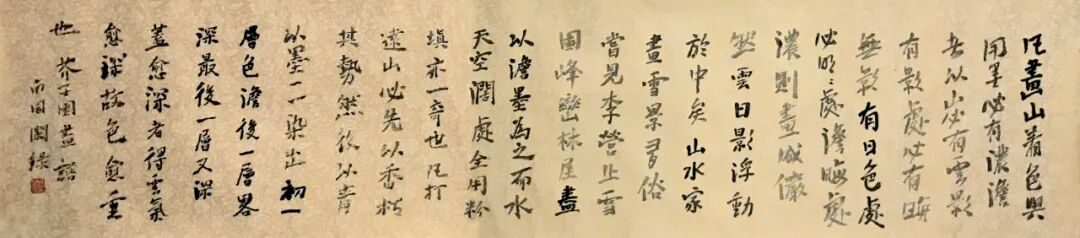 凡畫山着色與
用墨必有濃澹
者以山必有雲影
有影處必有晦
無影有日色處
必明〻處澹晦處
濃則畫成儼
然雲日影浮動
於中矣山水家
畫雪景多俗
嘗見李營丘雪
圖峰巒林屋盡
以澹墨為之而水
天空濶處全用粉
填亦一奇也凡打
遠山必先以香朽
其勢然後以青
以墨一一染出初一
層色澹後一層畧
深最後一層又深
蓋愈深者得雲氣
愈深故色愈重
也芥子園畫譜
田國錄